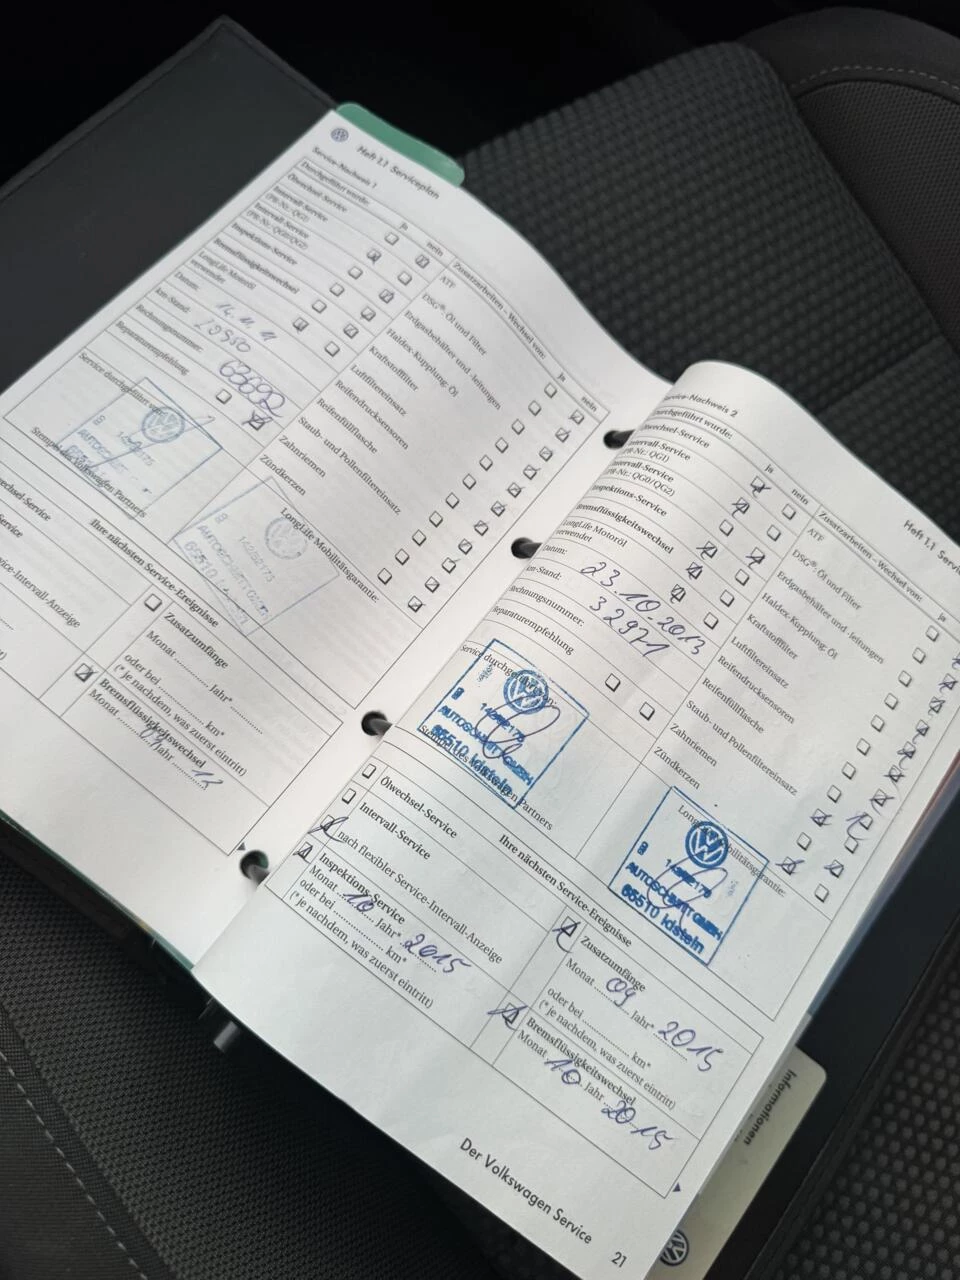 Heft 1.1 Serviceplan
Service-Nachweis 1
Durchgeführt wurde:
ja
nein
Ölwechsel-Service
Intervall-Service
(PR-Nr.: QG1)
Intervall-Service
(PR-Nr.: QG0/QG2)
Inspektions-Service
Bremsflüssigkeitswechsel
LongLife Motoröl
verwendet
Datum:
km-Stand:
Rechnungsnummer:
Reparaturempfehlung
Service durchgeführt von:
AUTOSCHMITT GMBH
Stempel des Volkswagen Partners
Zusatzarbeiten – Wechsel von:
ja
nein
ATF
DSG®: Öl und Filter
Erdgasbehälter und -leitungen
Haldex-Kupplung: Öl
Kraftstofffilter
Luftfiltereinsatz
Reifendrucksensoren
Reifenfüllflasche
Staub- und Pollenfiltereinsatz
Zahnriemen
Zündkerzen
LongLife Mobilitätsgarantie:
65510
Ihre nächsten Service-Ereignisse
Zusatzumfänge
Monat Jahr*
oder bei km*
(*je nachdem, was zuerst eintritt)
Bremsflüssigkeitswechsel
Monat Jahr
Service-Nachweis 2
Durchgeführt wurde:
ja
nein
Ölwechsel-Service
Intervall-Service
(PR-Nr.: QG1)
Intervall-Service
(PR-Nr.: QG0/QG2)
Inspektions-Service
Bremsflüssigkeitswechsel
LongLife Motoröl
verwendet
Datum: 23.10.2013
km-Stand: 32971
Rechnungsnummer:
Reparaturempfehlung
Service durchgeführt von:
AUTOSCHMITT GMBH
65510 Idstein
Stempel des Volkswagen Partners
Heft 1.1
Zusatzarbeiten – Wechsel von:
ja
ATF
DSG®: Öl und Filter
Erdgasbehälter und -leitungen
Haldex-Kupplung: Öl
Kraftstofffilter
Luftfiltereinsatz
Reifendrucksensoren
Reifenfüllflasche
Staub- und Pollenfiltereinsatz
Zahnriemen
Zündkerzen
LongLife Mobilitätsgarantie:
AUTOSCHMITT GMBH
65510 Idstein
Ihre nächsten Service-Ereignisse
Ölwechsel-Service
Intervall-Service
nach flexibler Service-Intervall-Anzeige
Inspektions-Service
Monat 10 Jahr* 2015
oder bei km*
(*je nachdem, was zuerst eintritt)
Zusatzumfänge
Monat 09 Jahr* 2015
oder bei km*
(*je nachdem, was zuerst eintritt)
Bremsflüssigkeitswechsel
Monat 10 Jahr 2015
Der Volkswagen Service
21
Informationen